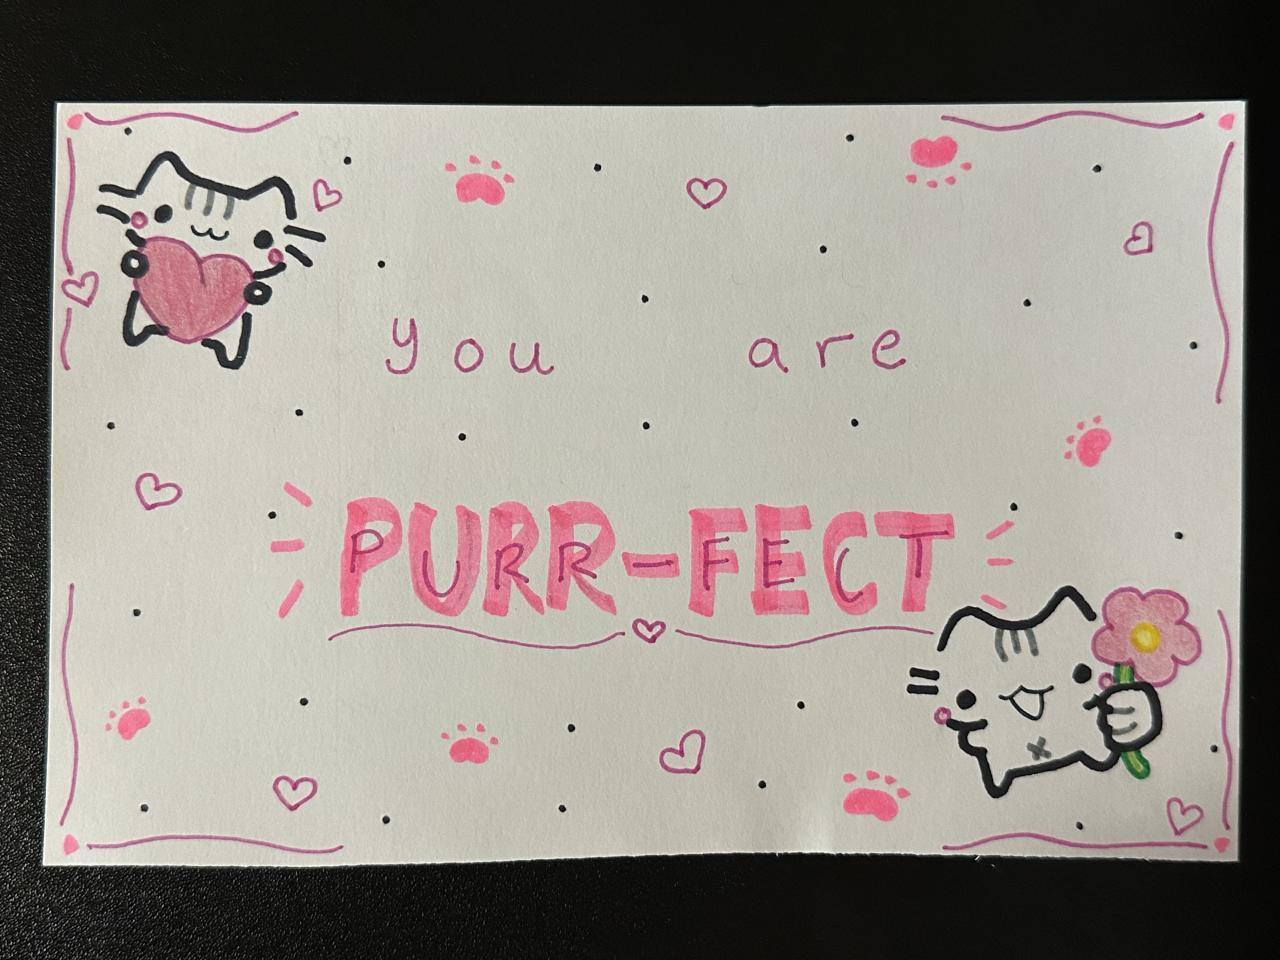 you are
PURR-FECT